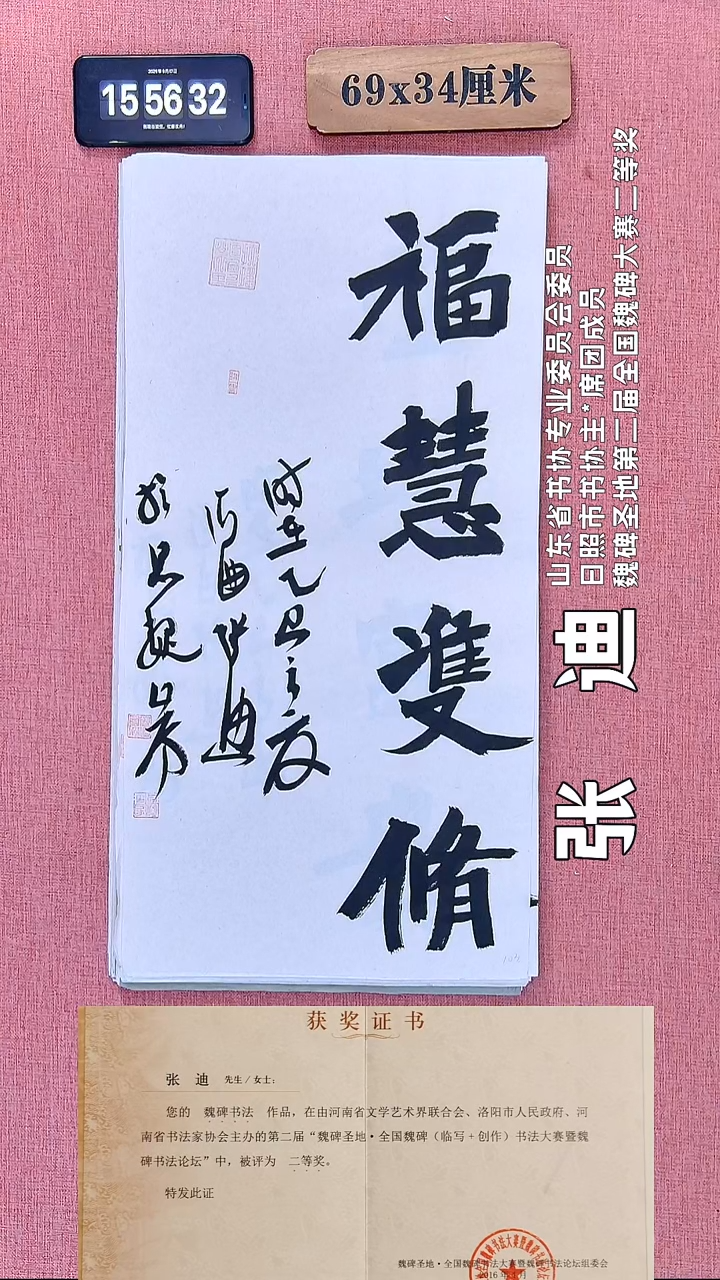 15 56 32
69x34厘米
福慧雙脩
时在乙巳之夏
张迪
山东省书协专业委员会委员
日照市书协主*席团成员
魏碑圣地第二届全国魏碑大赛二等奖
获奖证书
张 迪 先生/女士：
您的 魏碑书法 作品，在由河南省文学艺术界联合会、洛阳市人民政府、河
南省书法家协会主办的第二届“魏碑圣地·全国魏碑（临写+创作）书法大赛暨魏
碑书法论坛”中，被评为 二等奖。
特发此证
魏碑圣地·全国魏碑书法大赛暨魏碑书法论坛组委会